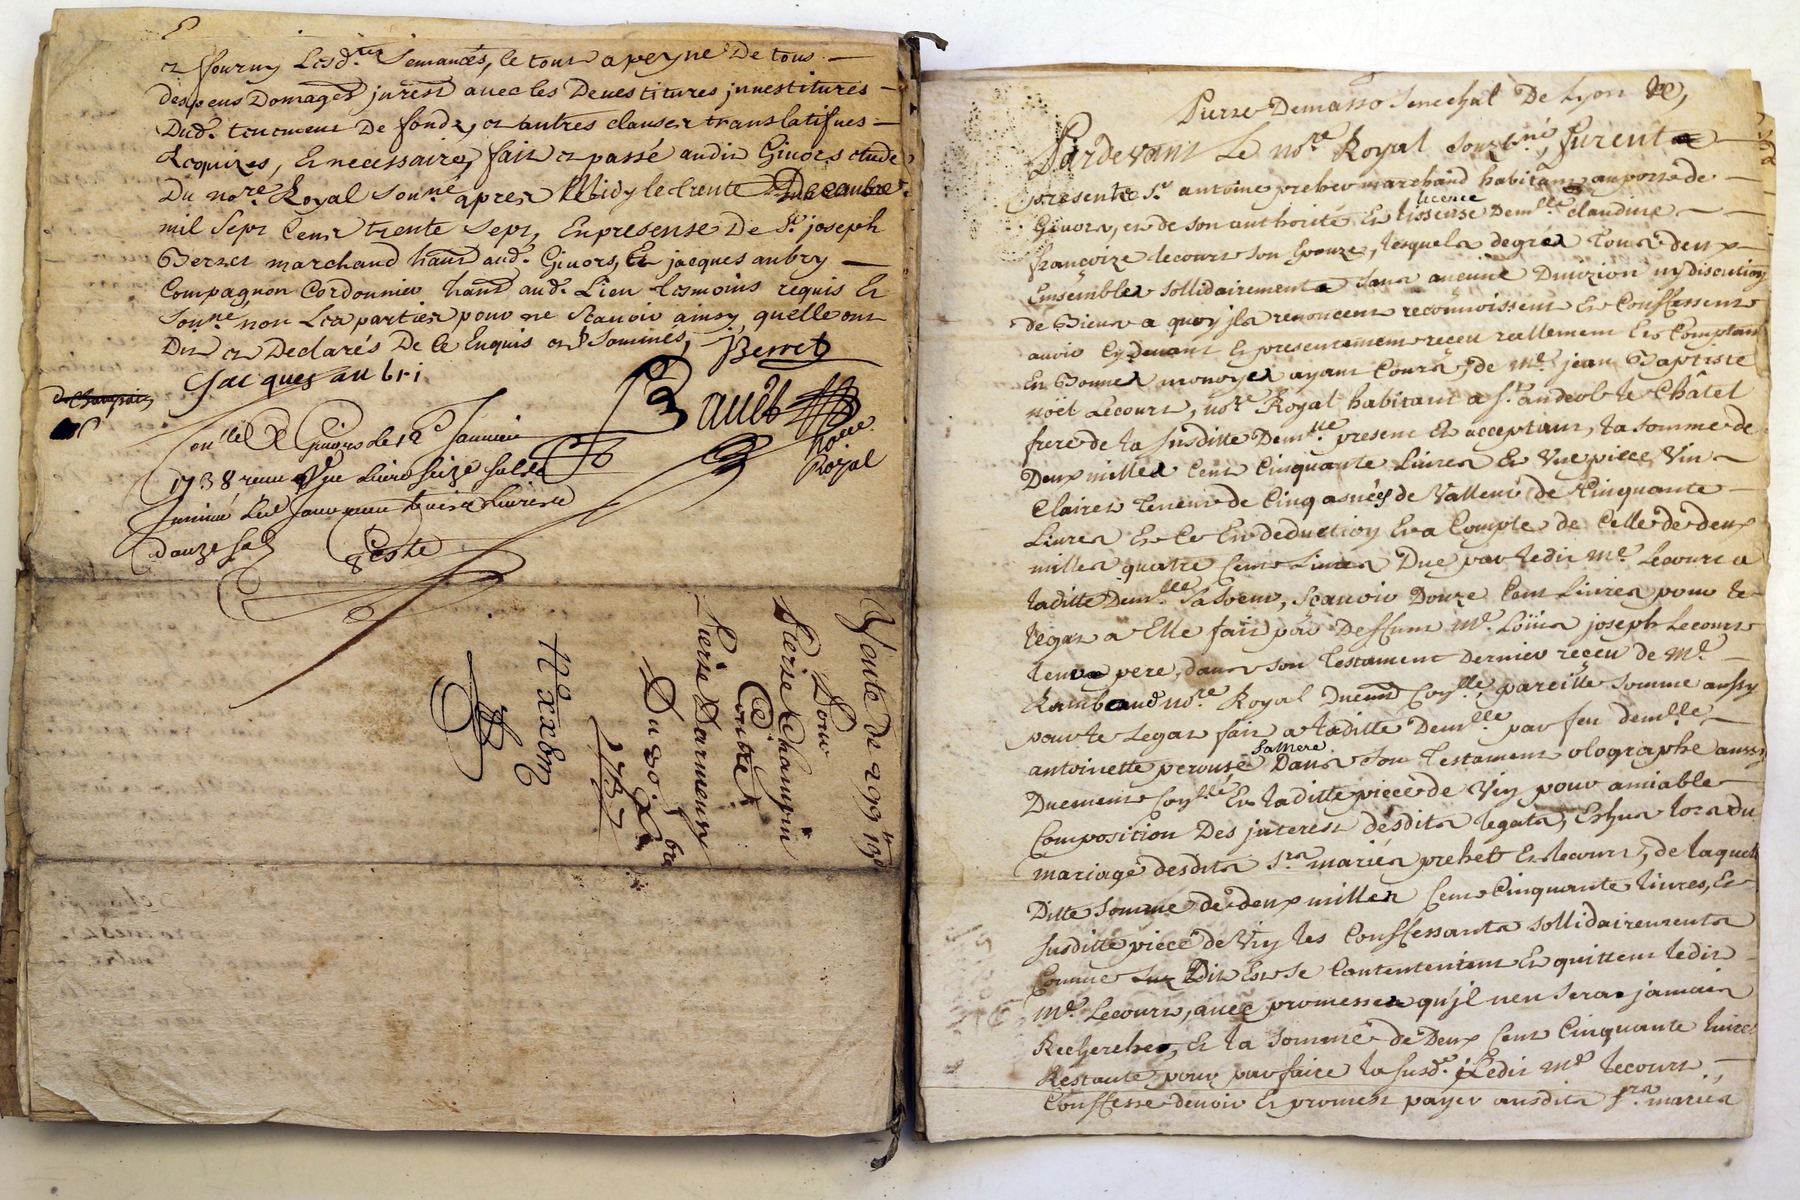 et fourny Lesd.ttes semances, le tout a peyne De tous
despens Domages jnrest avec les Devestitures jnvestitures
Dud. tenement De fondz, et autres clauses translatifves
Requizes, Et necessaires, fait et passé audit Givors etude
Du no.re Royal Sou.né apres Midy le trente Decembre
mil Sept Cent trente sept, En presense De S.r joseph
Berret marchand hant aud. Givors, Et jacques aubry
Compagnon Cordonnier hant aud. Lieu tesmoins requis Et
Sou.né non Les parties pour ne Scavoir ainsy quelle ont
Dit et Declarés De ce Enquis et Sommés, JBerret
Jacques aubri
Bauet
No.re
Royal
Con.llé a Givors le 12e Janvier
1738 receu
Coste
Vente de 299 lt
Pour
Pierre Champin
Contre
Pierre Darmeun
Du 30. Xbre
1737
N.o xx8m
Pierre Demasso Senechal De Lyon &c,
Pardevant Le no.re Royal Souz.né, furent
presents S.r antoine prebet marchand habitant au port de
Givors, et de son authorité Et licence Dem.lle claudine
françoize Lecourt son Epouze, lesquels degrés tous deux
Ensembles sollidairements sans aucune Divizion ny discution
de Biens a quoy jls renoncent reconnoissent Et Conffessent
avoir Cy devant Et presentement receu reellement Et Comptant
En Bonnes monoyes ayant Cours, de M.e jean Baptiste
noël Lecourt, no.re Royal habitant a S.t andeol le Châtel
frere de la susditte Dem.lle present Et acceptant, la somme de
Deux milles Cent Cinquante Livres Et Une piece Vin
Clairet teneur de Cinq asnées de Valleur de Cinquante
Livres Et Ce En deduction Et a Compte de Celle de deux
milles quatre Cent Livres Due par ledit M.e Lecourt a
laditte Dem.lle Sa Soeur, Scavoir Douze Cent Livres pour le
legat a Elle fait par Deffunt M.e Loüis joseph Lecourt
leur pere, dans son Testament Dernier receu de M.e
Rambaud no.re Royal Duemt Con.llé, pareille somme aussy
pour le Legat fait a laditte Dem.lle par feu dem.lle
antoinette perouse Sa Mere Dans son Testament olographe aussy
Duement Con.llé Et laditte piece de Vin pour amiable
Composition Des jnterest desdits legats, Eshus lors du
mariage desdits S.rs mariés prebet Et lecourt, de laquelle
Ditte Somme de deux milles Cent Cinquante livres, Et
susditte piece de Vin les Conffessants sollidairements
Comme Dit Est Se Contententent Et quittent ledit
M.e Lecourt, avec promesses qu'jl n'en sera jamais
Recherchés, Et la Somme de Deux Cent Cinquante livres
Restante pour parfaire la susd.e Ledit M.e lecourt
Conffesse devoir Et promest payer ausdits S.rs mariés